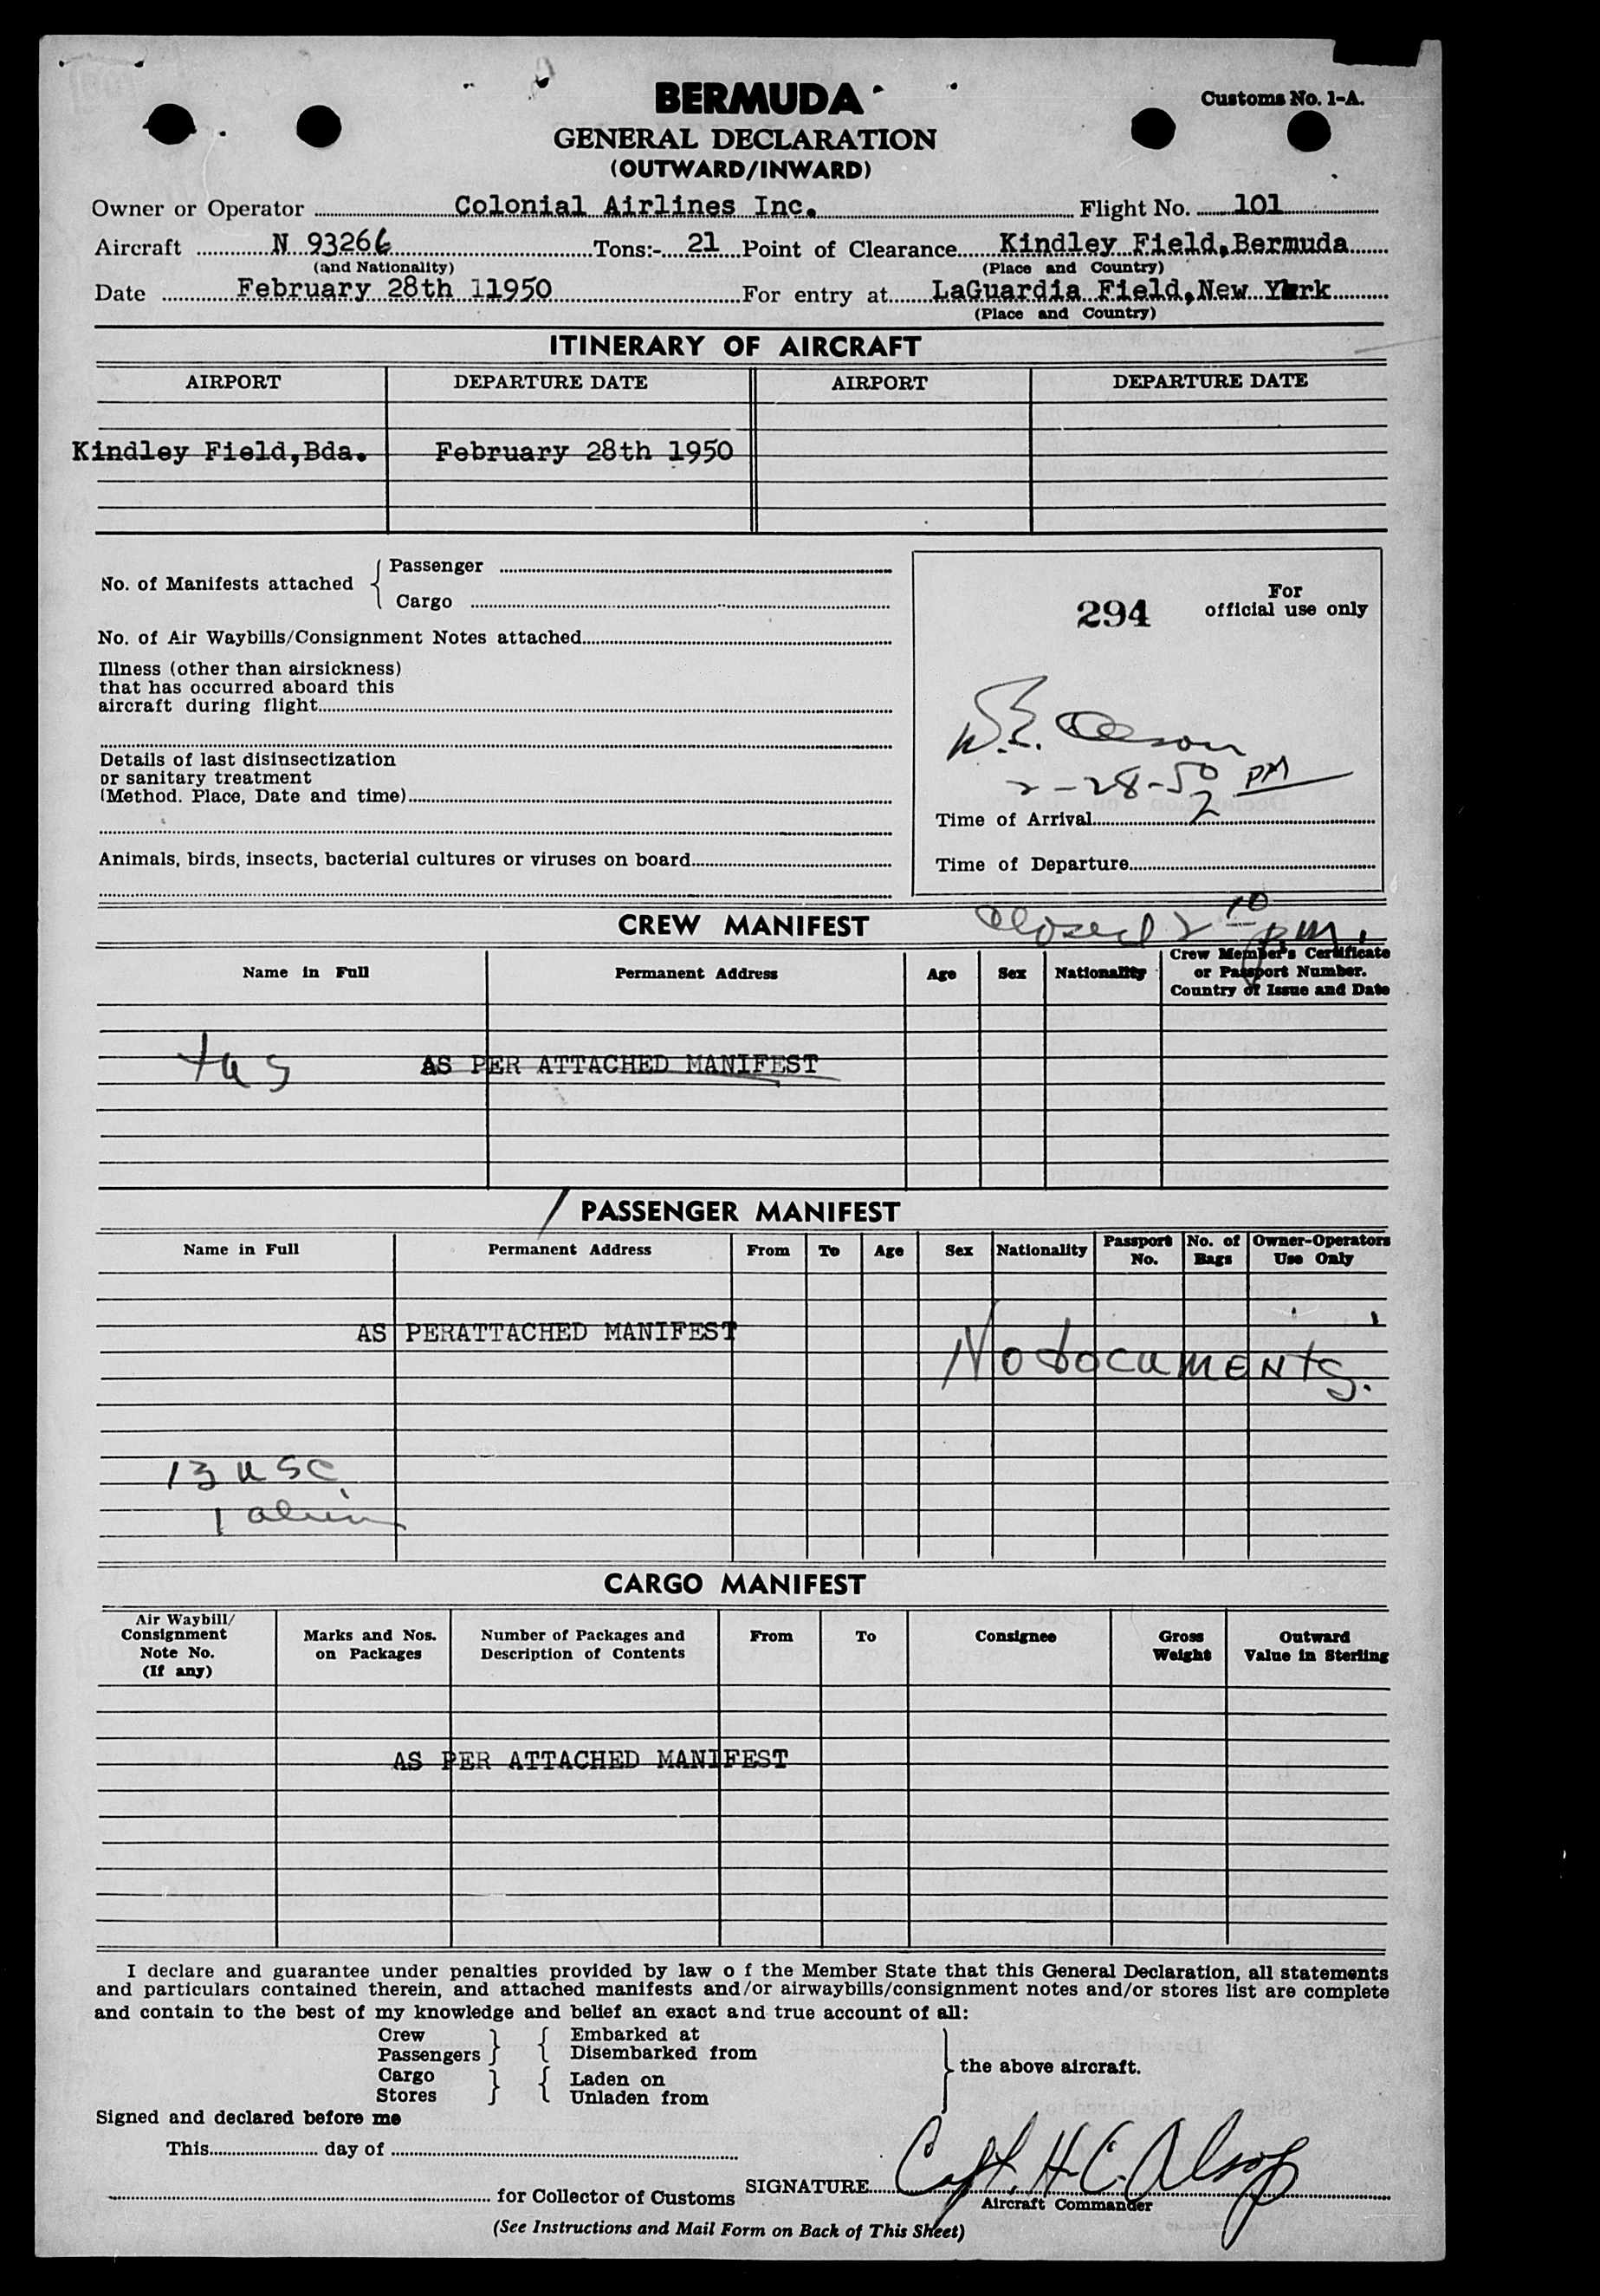 BERMUDA
Customs No. 1-A.
GENERAL DECLARATION
(OUTWARD/INWARD)
Owner or Operator Colonial Airlines Inc. Flight No. 101
Aircraft N 93266 Tons:- 21 Point of Clearance Kindley Field,Bermuda
(and Nationality) (Place and Country)
Date February 28th 11950 For entry at LaGuardia Field,New York
(Place and Country)
ITINERARY OF AIRCRAFT
AIRPORT DEPARTURE DATE AIRPORT DEPARTURE DATE
Kindley Field,Bda. February 28th 1950
No. of Manifests attached { Passenger
Cargo
No. of Air Waybills/Consignment Notes attached
Illness (other than airsickness)
that has occurred aboard this
aircraft during flight
Details of last disinsectization
or sanitary treatment
(Method. Place, Date and time)
Animals, birds, insects, bacterial cultures or viruses on board
294 For
official use only
2-28-50 PM
2
Time of Arrival
Time of Departure
CREW MANIFEST closed 2 10 pm.
Name in Full Permanent Address Age Sex Nationality Crew Member's Certificate
or Passport Number.
Country of Issue and Date
AS PER ATTACHED MANIFEST
PASSENGER MANIFEST
Name in Full Permanent Address From To Age Sex Nationality Passport No. No. of Bags Owner-Operators Use Only
AS PERATTACHED MANIFEST
No documents.
13 USC
1 alien
CARGO MANIFEST
Air Waybill/
Consignment
Note No.
(If any)
Marks and Nos.
on Packages
Number of Packages and
Description of Contents
From
To
Consignee
Gross
Weight
Outward
Value in Sterling
AS PER ATTACHED MANIFEST
I declare and guarantee under penalties provided by law o f the Member State that this General Declaration, all statements
and particulars contained therein, and attached manifests and/or airwaybills/consignment notes and/or stores list are complete
and contain to the best of my knowledge and belief an exact and true account of all:
Crew } { Embarked at
Passengers Disembarked from
} the above aircraft.
Cargo } { Laden on
Stores Unladen from
Signed and declared before me
This day of
SIGNATURE Capt. H. C. Alsop
for Collector of Customs
Aircraft Commander
(See Instructions and Mail Form on Back of This Sheet)